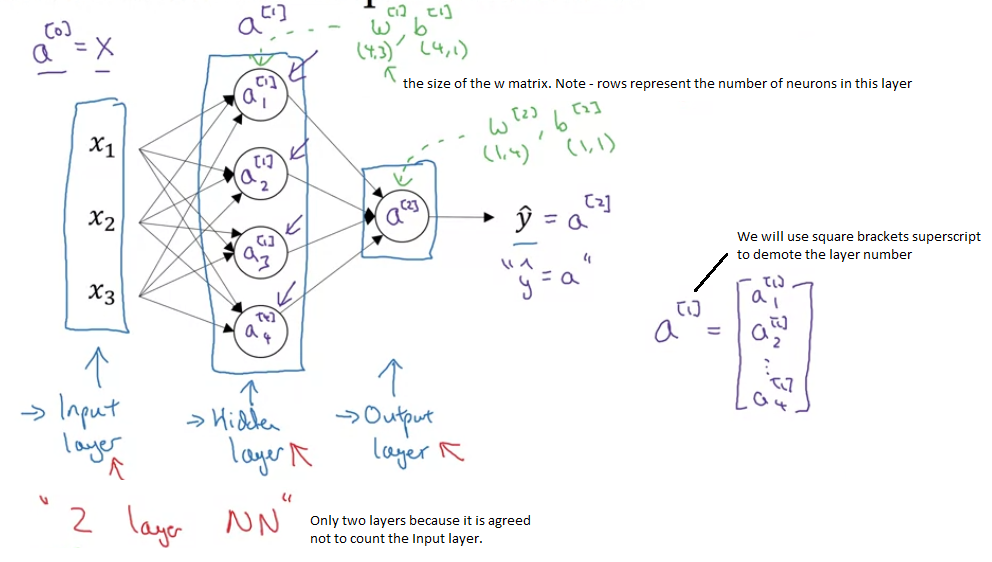 a^[0] = X
a^[1]
w^[1], b^[1]
(4,3) (4,1)
the size of the w matrix. Note - rows represent the number of neurons in this layer
x₁
x₂
x₃
a₁^[1]
a₂^[1]
a₃^[1]
a₄^[1]
w^[2], b^[2]
(1,4) (1,1)
a^[2]
ŷ = a^[2]
"ŷ = a"
We will use square brackets superscript
to demote the layer number
a^[1] =
a₁^[1]
a₂^[1]
⋮
a₄^[1]
→ Input
layer
→ Hidden
layer
→ Output
layer
"2 layer NN"
Only two layers because it is agreed
not to count the Input layer.